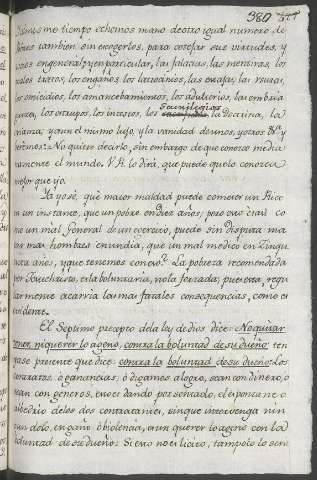 380
mismo tiempo echemos mano de otro igual numero de
pobres tambien sin excogerlos, para cotejar sus virtudes, y
vicios en general y en particular, las falacias, las mentiras, los
malos tratos, los engaños, los latrocinios, las estafas, las usuras,
los omicidios, los amancebamientos, los adulterios, las embria
guezes, los estupos, los incestos, los Sacrilegios, la Doctrina, la
y aun el mismo lujo, y la vanidad de unos, y otros
No quiero decirlo, sin embargo de que conozco media
namente el mundo. V.A. lo dirá, que puede que lo conozca
mejor que yo.
Ya yo sé, que maior maldad puede cometer un Rico
en un instante, que un pobre en diez años; pero
mo un mal General de un exercito, puede sin disputa ma
tar mas hombres en un dia, que un mal medico en Zinqu
enta años, y que tenemos con eso? La pobreza recomendada
por Jesuchristo, es la boluntaria, no la forzada; pues esta, regu
larmente acarrea las mas fatales consequencias, como es
evidente.
El Septimo precepto de la ley de dios dice: No quitar
tener, ni querer lo ageno, contra la boluntad de su dueño: ten
gase presente que dice: contra la boluntad de su dueño. Los
contratos, ó ganancias, ó digamos alogro, sean con dinero, o
sean con generos, en
albedrio de los dos contratantes, sin que intervenga nin
gun dolo, engaño, ó biolencia, es un querer lo ageno con la
boluntad de su dueño: Si esto no es licito, tampoco lo sera